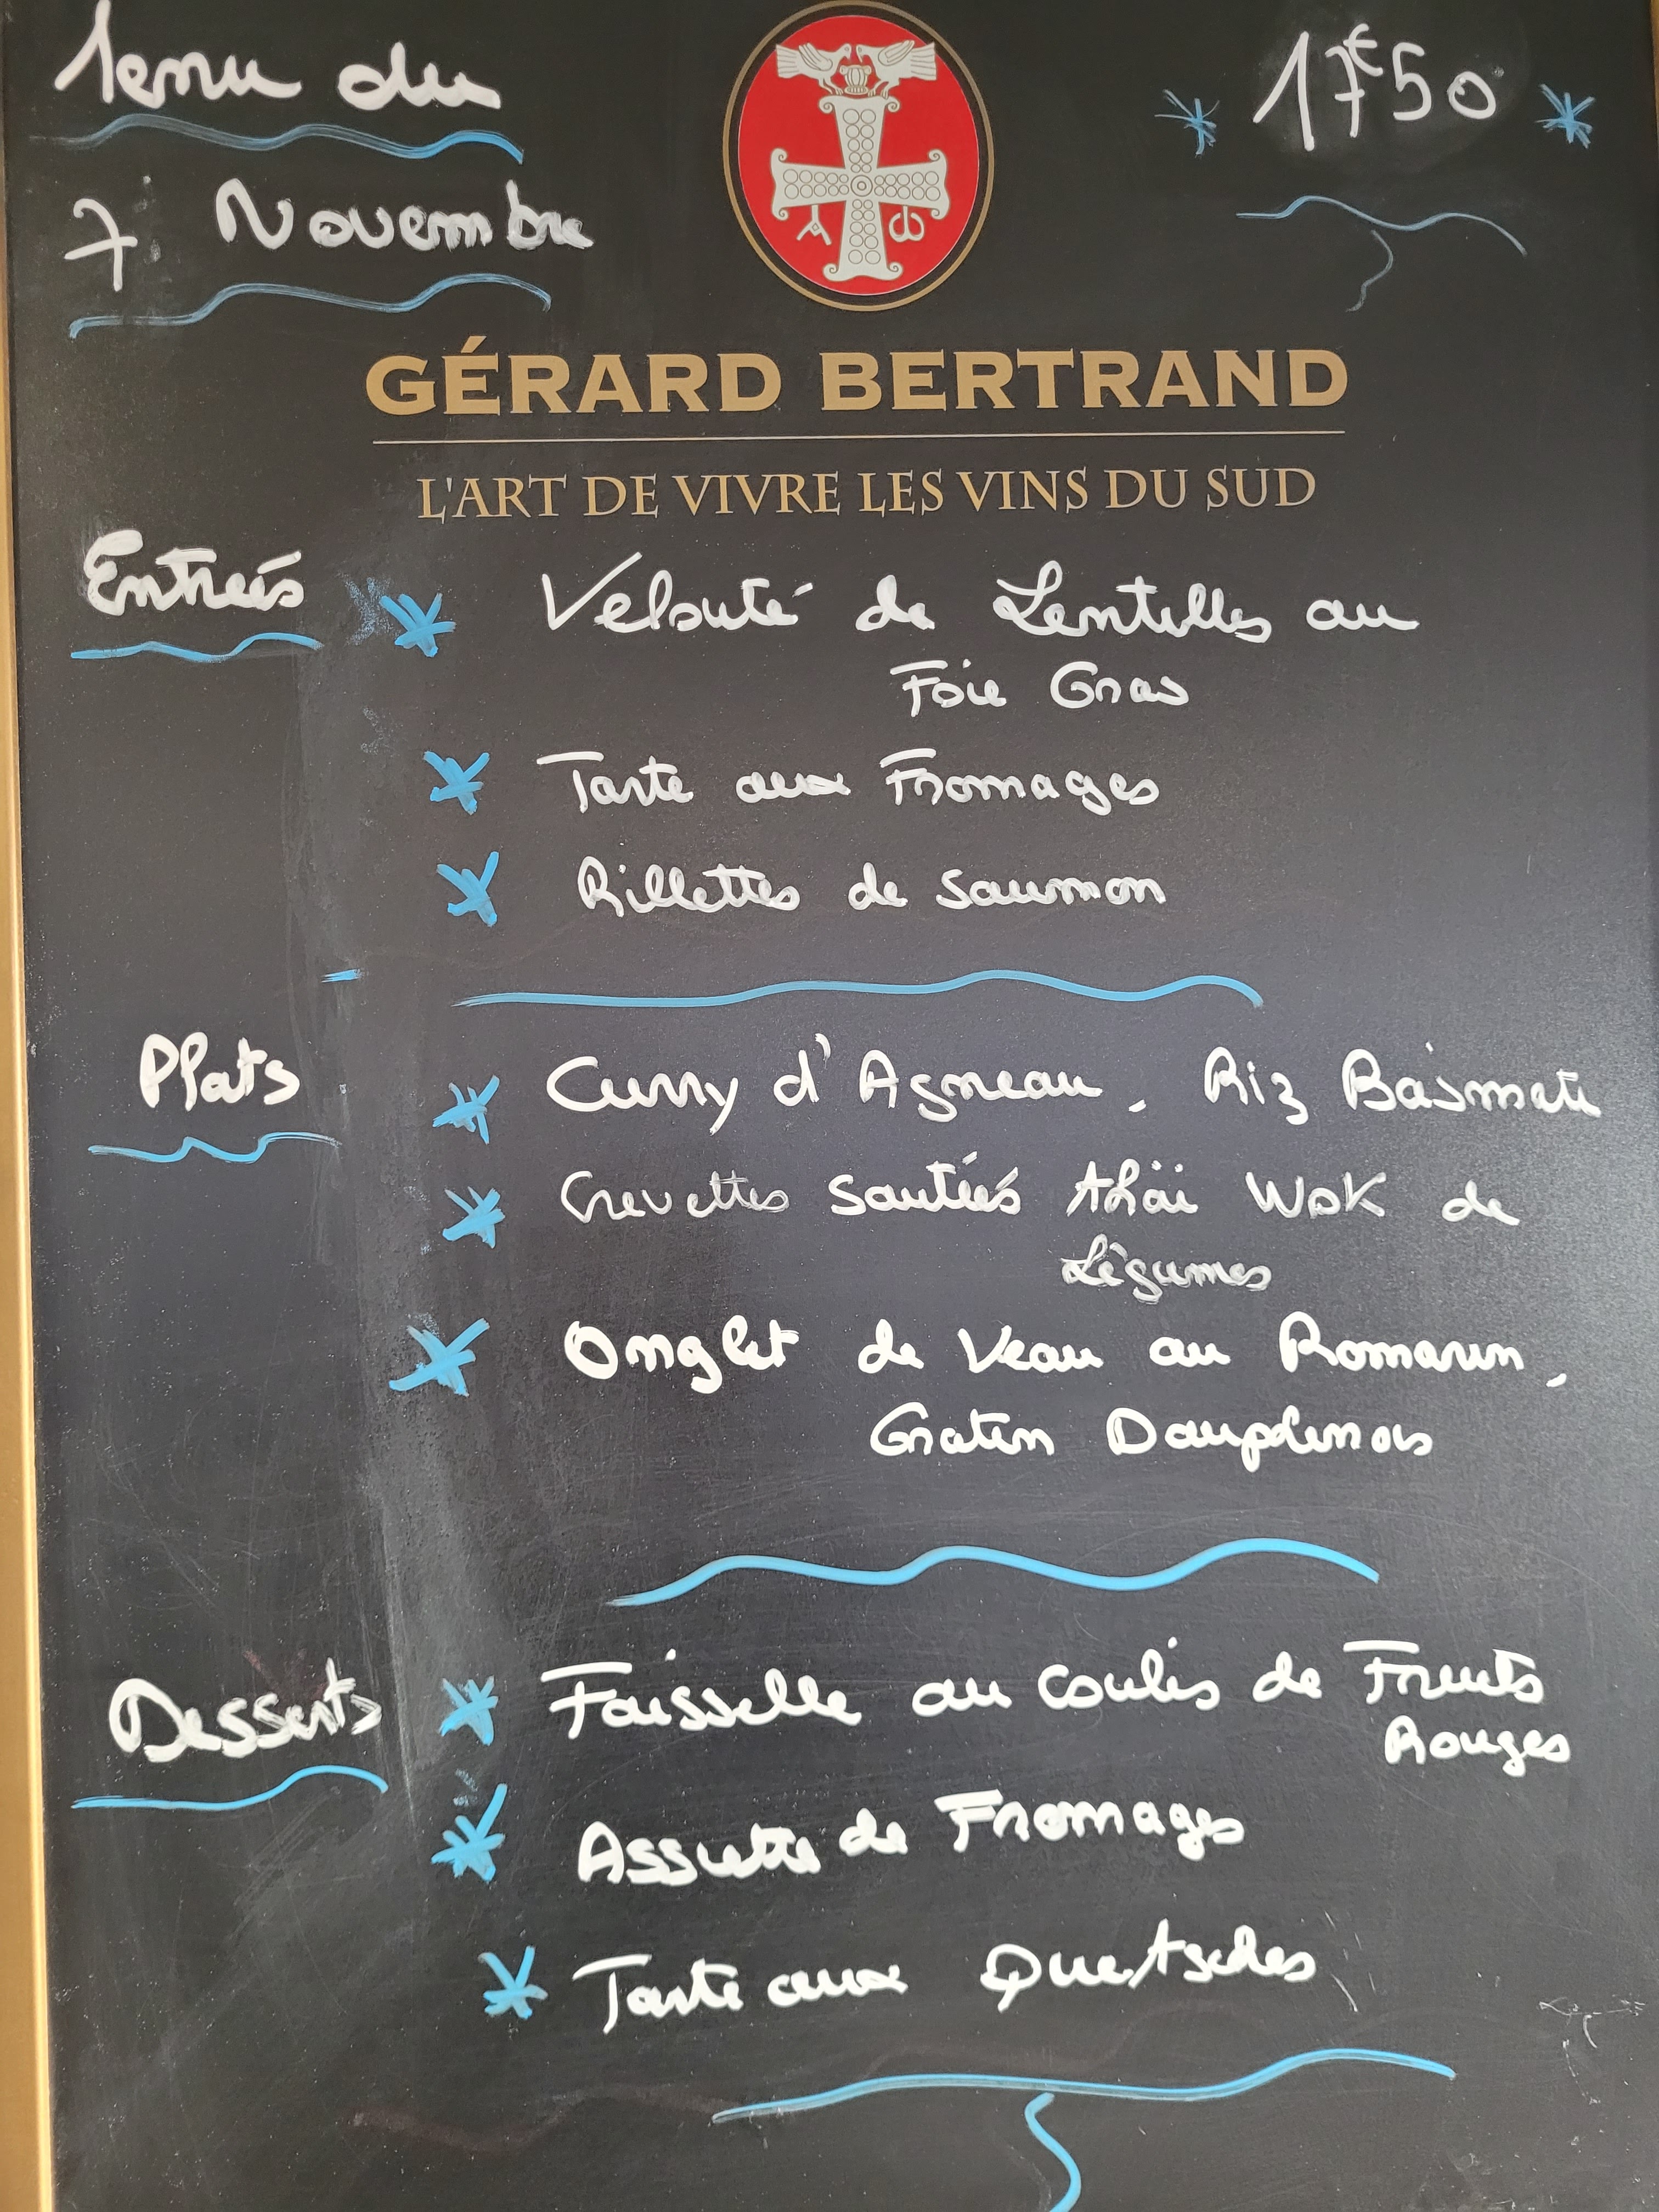 Menu du
7 Novembre
17€50
GÉRARD BERTRAND
L'ART DE VIVRE LES VINS DU SUD
Entrées
Velouté de Lentilles au
Foie Gras
Tarte aux Fromages
Rillettes de Saumon
Plats
Curry d'Agneau, Riz Basmati
Crevettes Sautées thaï Wok de
Légumes
Onglet de Veau au Romarin,
Gratin Dauphinois
Desserts
Faisselle au Coulis de Fruits
Rouges
Assiette de Fromages
Tarte aux Quetsches